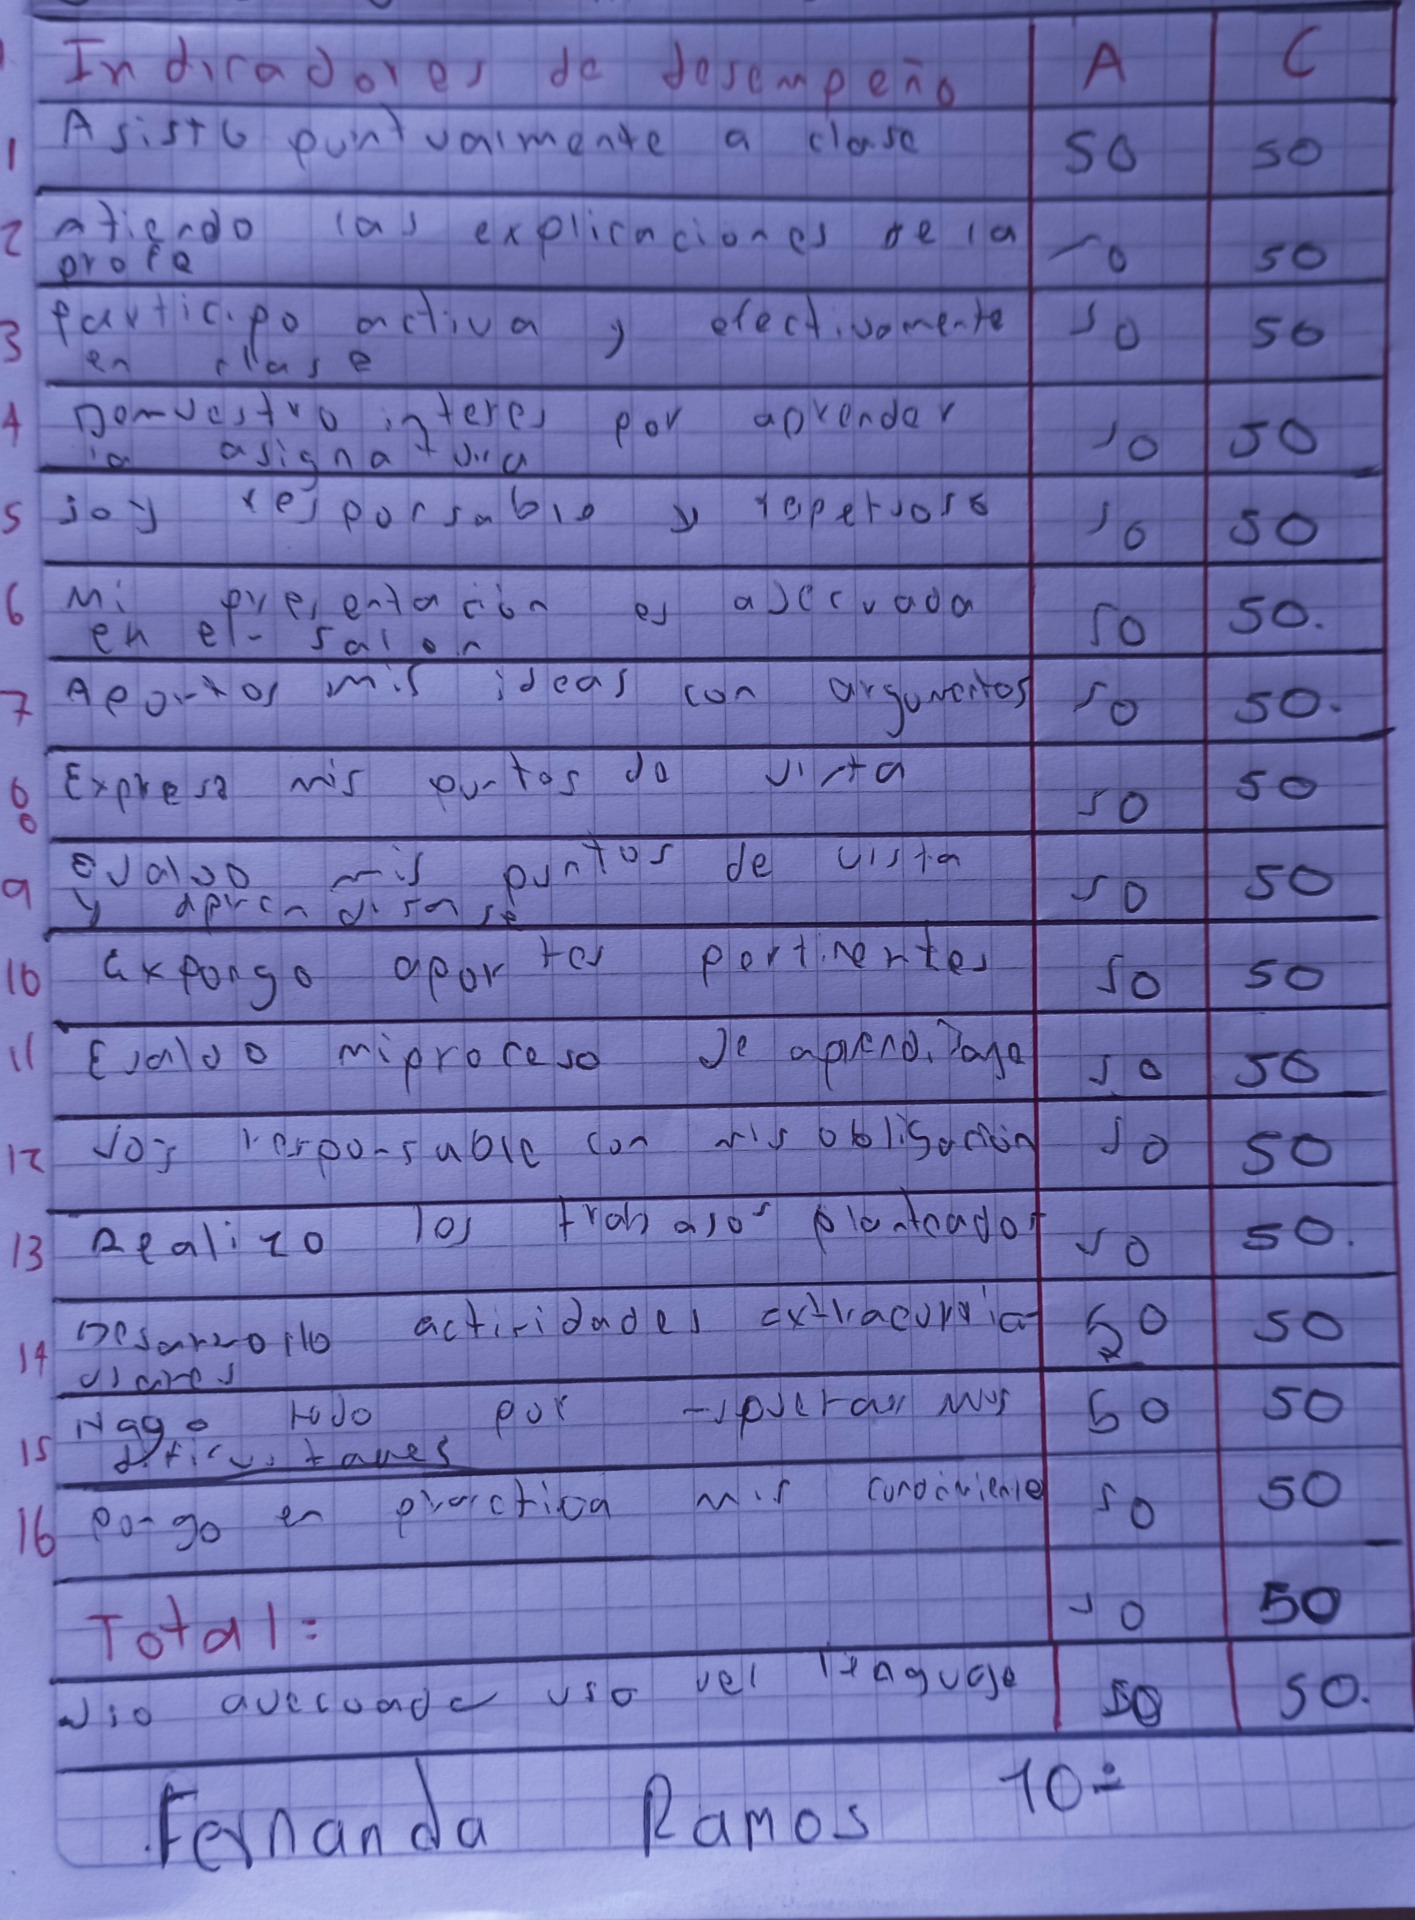 Indicadores de desempeño A C
1 Asisto puntualmente a clase 50 50
2 atiendo las explicaciones de la 50 50
profe
3 participo activa y efectivamente 50 50
en clase
4 Demuestro interes por aprender 50 50
la asignatura
5 soy responsable y 50 50
6 Mi presentación es adecuada 50 50.
en el salon
7 Aportos mis ideas con argumentos 50 50.
8 Expreso mis puntos de vista 50 50
9 Evaluo mis puntos de vista 50 50
y
10 Expongo aportes pertinentes 50 50
11 Evaluo mi proceso de aprendizaje 50 50
12 soy responsable con mis obligación 50 50
13 Realizo los trabajos planteados 50 50.
14 Desarrollo actividades 50 50
15 Hago todo por mis 50 50
16 pongo en practica mis 50 50
Total: 50 50
uso del lenguaje 50 50.
Fernanda Ramos 10